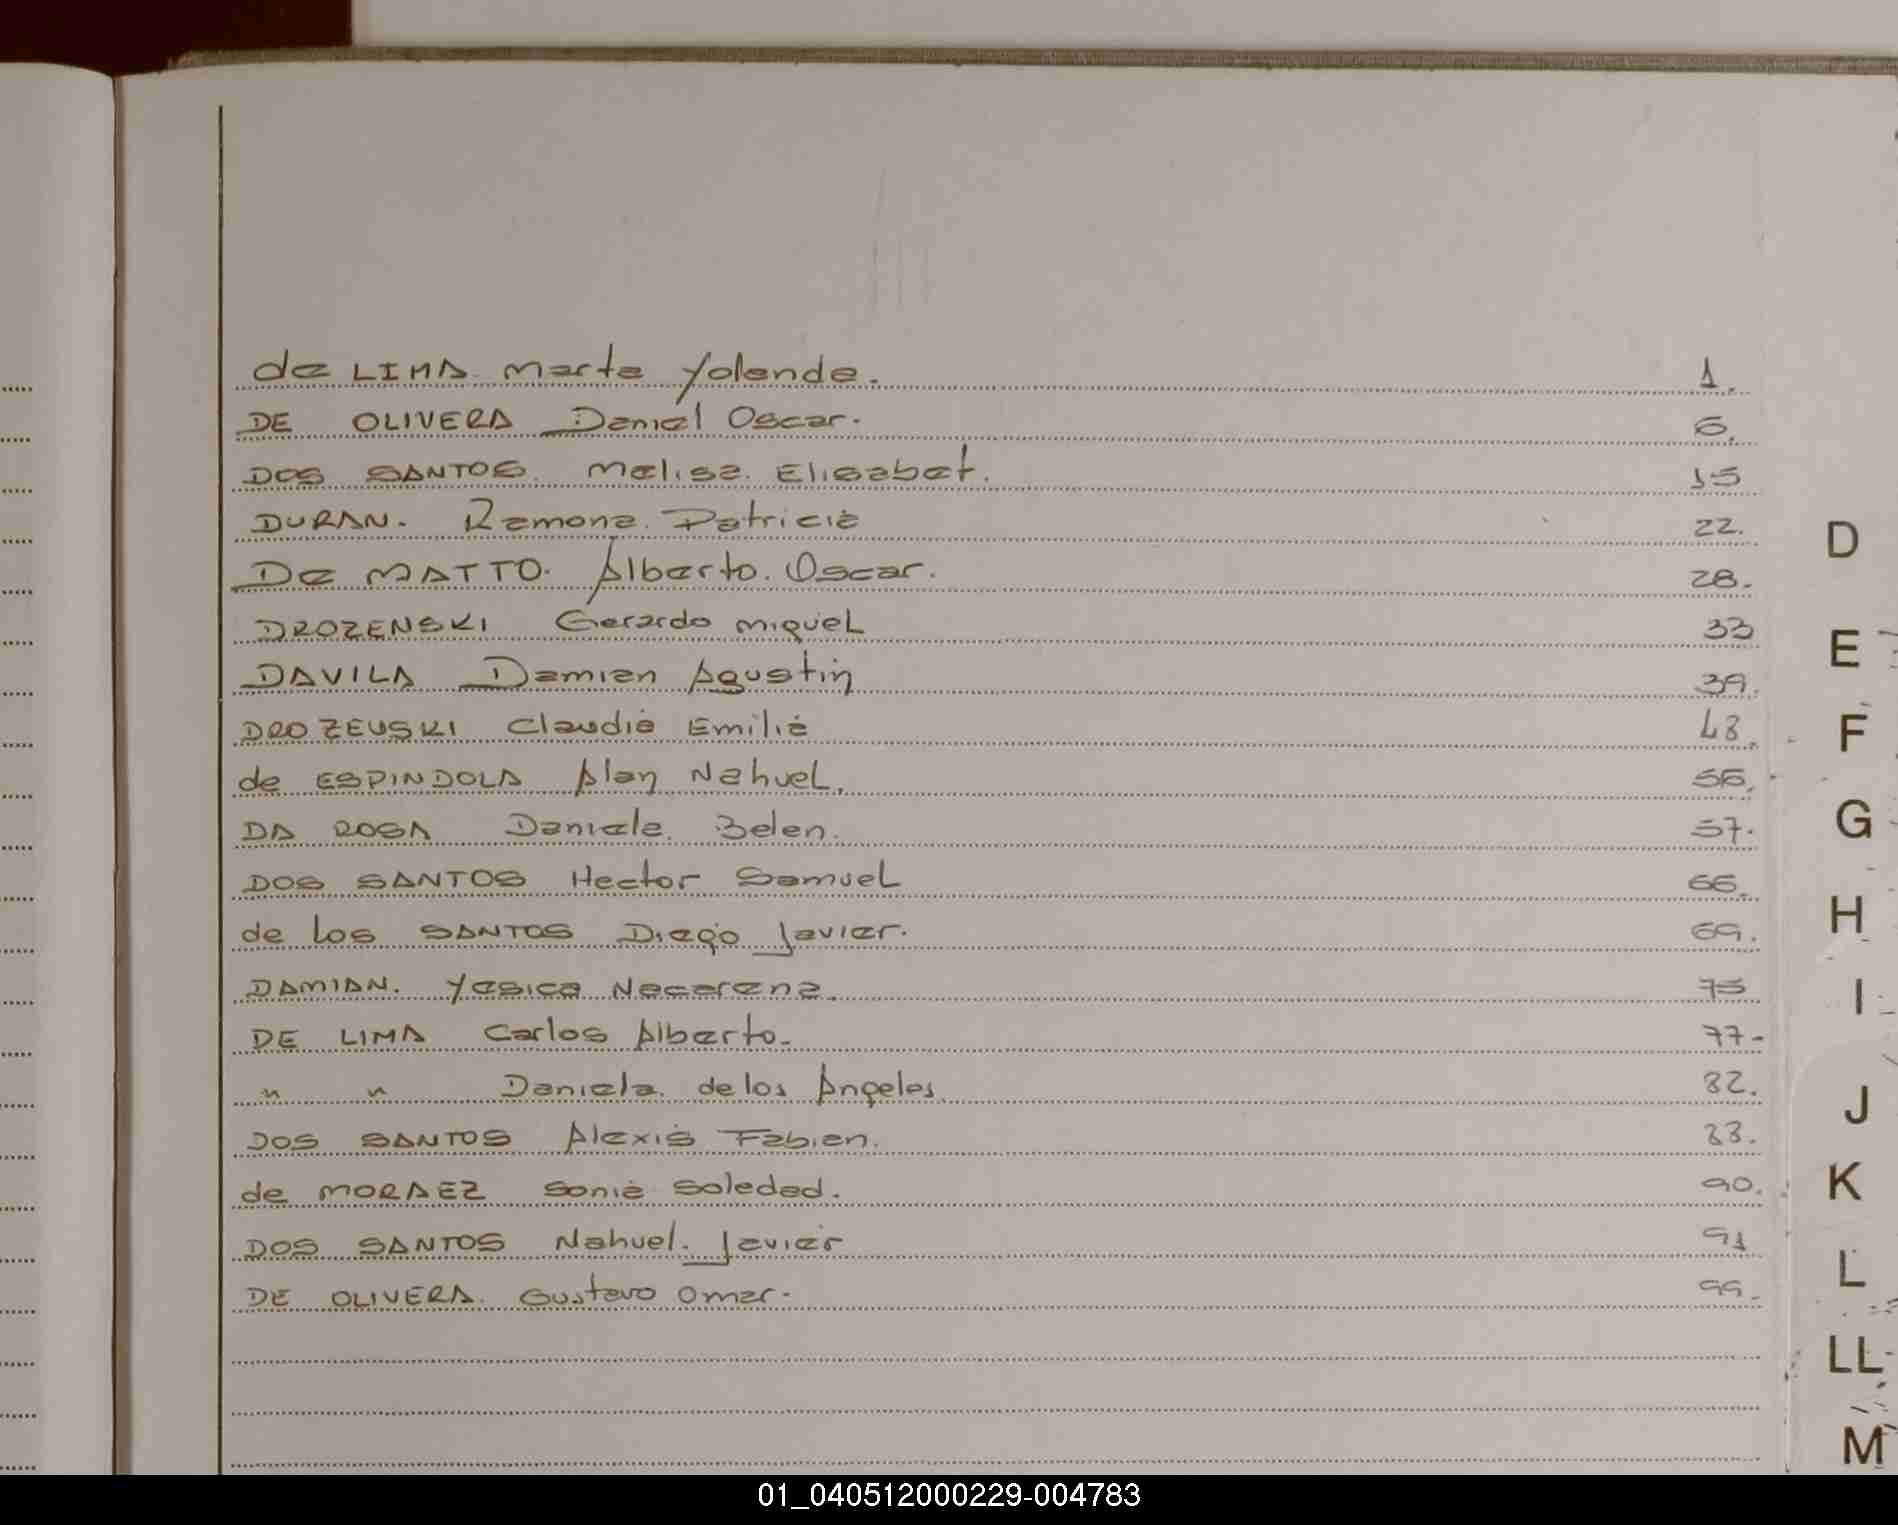 de LIMA Marta Yolanda. 1.
DE OLIVERA Daniel Oscar. 6.
DOS SANTOS. Melisa. Elisabet. 15
DURAN. Ramona. Patricia 22.
De MATTO. Alberto. Oscar. 28.
DROZENSKI Gerardo Miguel 33
DAVILA Damian Agustin 39.
DROZEUSKI Claudia Emilia 48.
de ESPINDOLA Alan Nahuel. 56.
DA ROSA Daniela. Belen. 57.
DOS SANTOS Hector Samuel 66.
de los SANTOS Diego Javier. 69.
DAMIAN. Yesica Necarena. 75
DE LIMA Carlos Alberto. 77-
" " Daniela. de los Angeles 82.
DOS SANTOS Alexis Fabian. 83.
de MORAEZ Sonia Soledad. 90.
DOS SANTOS Nahuel. Javier 91
DE OLIVERA. Gustavo Omar. 99.
D
E
F
G
H
I
J
K
L
LL
M
01_040512000229-004783